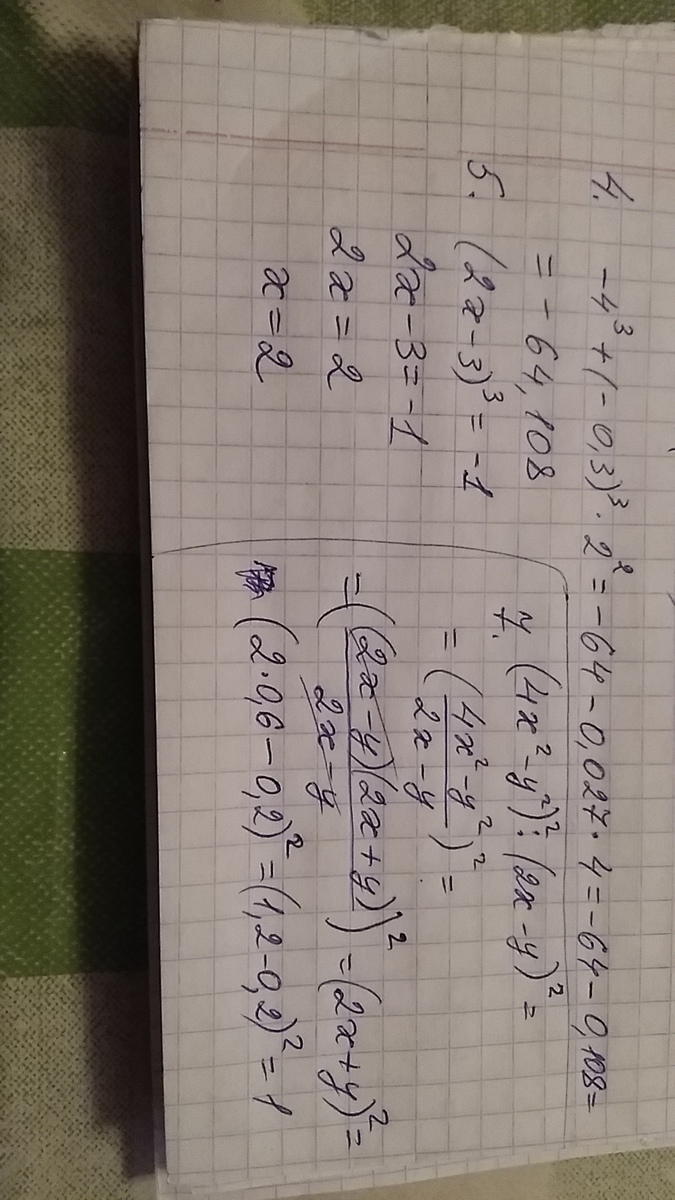 4. -4³ + (-0,3)³ · 2² = -64 - 0,027 · 4 = -64 - 0,108 =
= -64,108
5. (2x-3)³ = -1
2x-3 = -1
2x = 2
x = 2
7. (4x²-y²)² : (2x-y)² =
= ((4x²-y²)/(2x-y))² =
= (((2x-y)(2x+y))/(2x-y))² = (2x+y)² =
(2·0,6 - 0,2)² = (1,2-0,2)² = 1